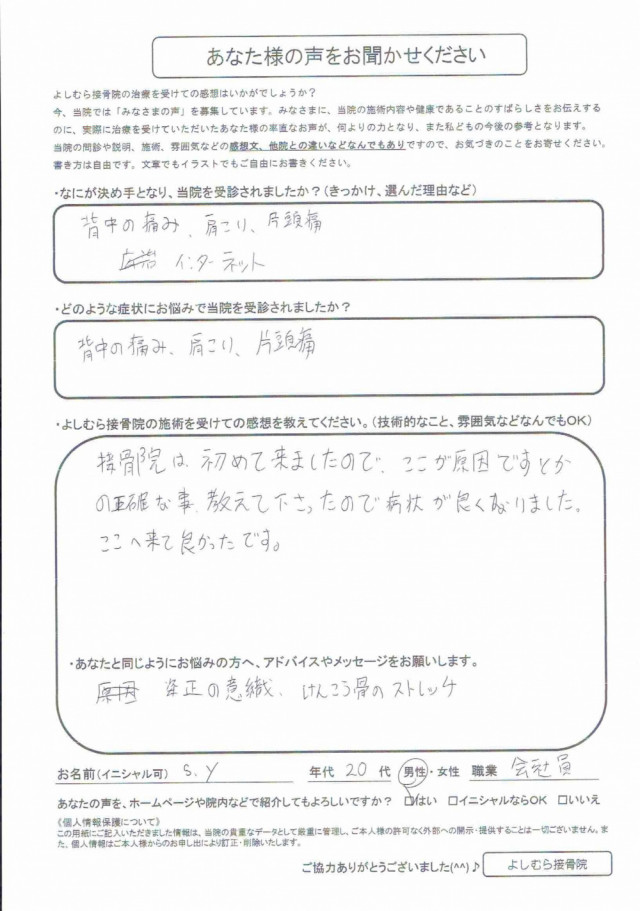 あなた様の声をお聞かせください
よしむら接骨院の治療を受けての感想はいかがでしょうか？
今、当院では「みなさまの声」を募集しています。みなさまに、当院の施術内容や健康であることのすばらしさをお伝えする
のに、実際に治療を受けていただいたあなた様の率直なお声が、何よりの力となり、また私どもの今後の参考となります。
当院の問診や説明、施術、雰囲気などの感想文、他院との違いなどなんでもありですので、お気づきのことをお寄せください。
書き方は自由です。文章でもイラストでもご自由にお書きください。
・なにが決め手となり、当院を受診されましたか？（きっかけ、選んだ理由など）
背中の痛み、肩こり、片頭痛
インターネット
・どのような症状にお悩みで当院を受診されましたか？
背中の痛み、肩こり、片頭痛
・よしむら接骨院の施術を受けての感想を教えてください。（技術的なこと、雰囲気などなんでもOK）
接骨院は、初めて来ましたので、ここが原因ですとか
の正確な事、教えて下さったので病状が良くなりました。
ここへ来て良かったです。
・あなたと同じようにお悩みの方へ、アドバイスやメッセージをお願いします。
原因 姿正の意織、けんこう骨のストレッチ
お名前（イニシャル可） S.Y 年代 20 代 男性・女性 職業 会社員
あなたの声を、ホームページや院内などで紹介してもよろしいですか？ □はい □イニシャルならOK □いいえ
《個人情報保護について》
この用紙にご記入いただきました情報は、当院の貴重なデータとして厳重に管理し、ご本人様の許可なく外部への開示・提供することは一切ございません。ま
た、個人情報はご本人様からのお申し出により訂正・削除いたします。
ご協力ありがとうございました(^^)♪ よしむら接骨院